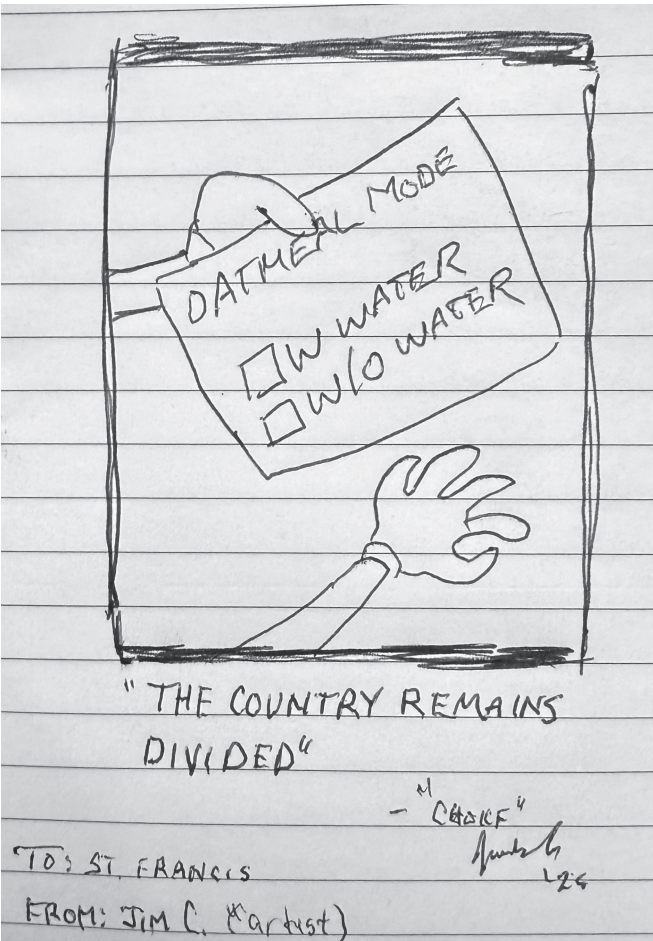 OATMEAL MODE
W WATER
W/O WATER
"THE COUNTRY REMAINS
DIVIDED"
- "CHOICE"
TO: ST. FRANCIS
FROM: JIM C. (artist)